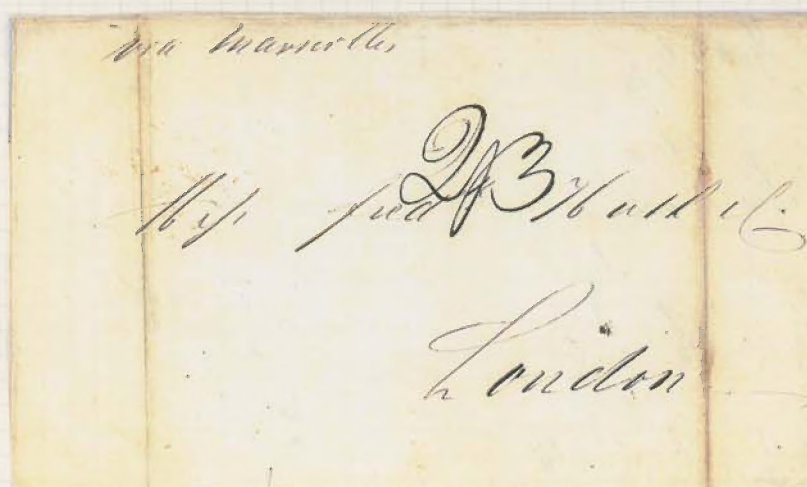 via Marseilles
2/3
Messrs Fred Huth & Co.
London